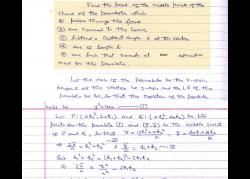 Find the locus of the middle points of the
chords of the parabola which
(a) passes through the focus
(b) are normal to the curve
(c) subtend a constant angle α at the vertex
(d) are of length l
(e) are such that normals at their extremities
meet on the parabola.
Let the axis of the parabola be the x-axis,
tangent at the vertex be y-axis and the L.R of the
parabola be 4a, so that the equation of the parabola
will be y² = 4ax — (1)
Let P: (at₁², 2at₁) and Q: (at₂², 2at₂) be two
points on the parabola (1) and (x̄, ȳ) be the middle points
of P and Q, so that x̄ = (at₁²+at₂²)/2, ȳ = (2at₁+2at₂)/2
⇒ 2x̄/a = t₁²+t₂² — (2) & ȳ/a = t₁+t₂ — (3)
But t₁²+t₂² = (t₁+t₂)² - 2t₁t₂
⇒ 2x̄/a = ȳ²/a² - 2t₁t₂